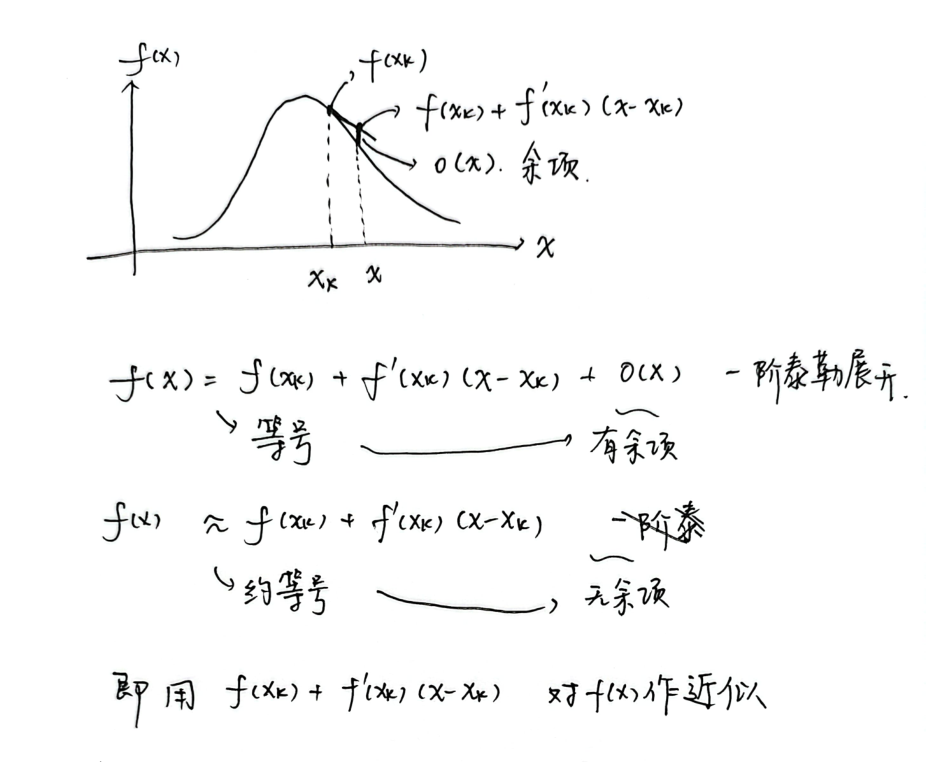 f(x)
f(xₖ)
f(xₖ) + f'(xₖ) (x - xₖ)
o(x). 余项.
x
xₖ x
f(x) = f(xₖ) + f'(xₖ) (x - xₖ) + o(x) 一阶泰勒展开.
等号 有余项
f(x) ≈ f(xₖ) + f'(xₖ) (x - xₖ) 一阶泰
约等号 无余项
即用 f(xₖ) + f'(xₖ) (x - xₖ) 对f(x)作近似